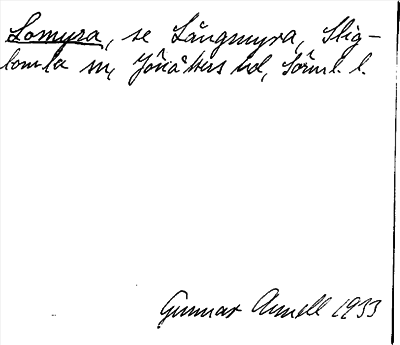 Lomyra, se Långmyra, Stig-
tomta sn, Jönåkers hd, Södml. l.
Gunnar Arnell 1933